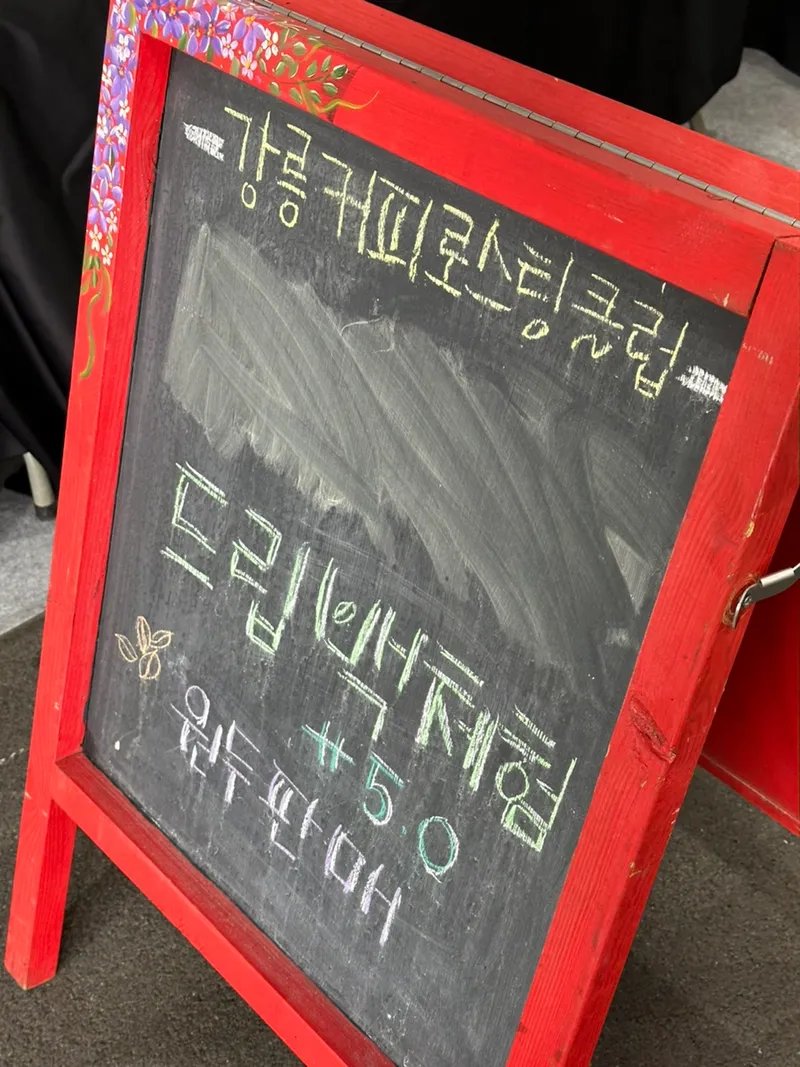 강릉커피로스팅클럽
드립백체험
₩5.0
원두판매